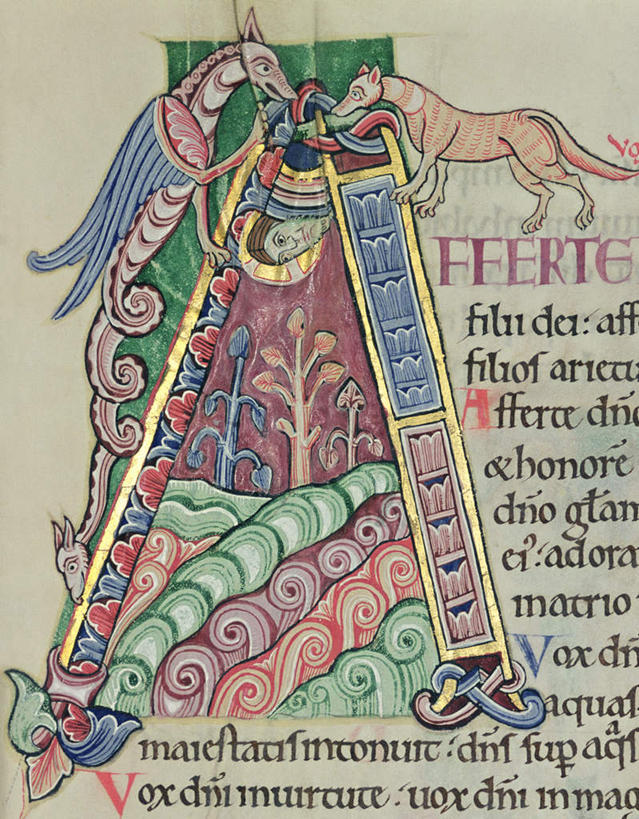 AFFERTE
filii dei: aff
filios arietu
Afferte dn̄o
& honorē
dn̄o gl̄am
ei᾿: adora
in atrio
Vox dn̄i
aquas
maiestatis intonuit: dn̄s sup̱ aq̄s
Vox dn̄i in uirtute: uox dn̄i in mag